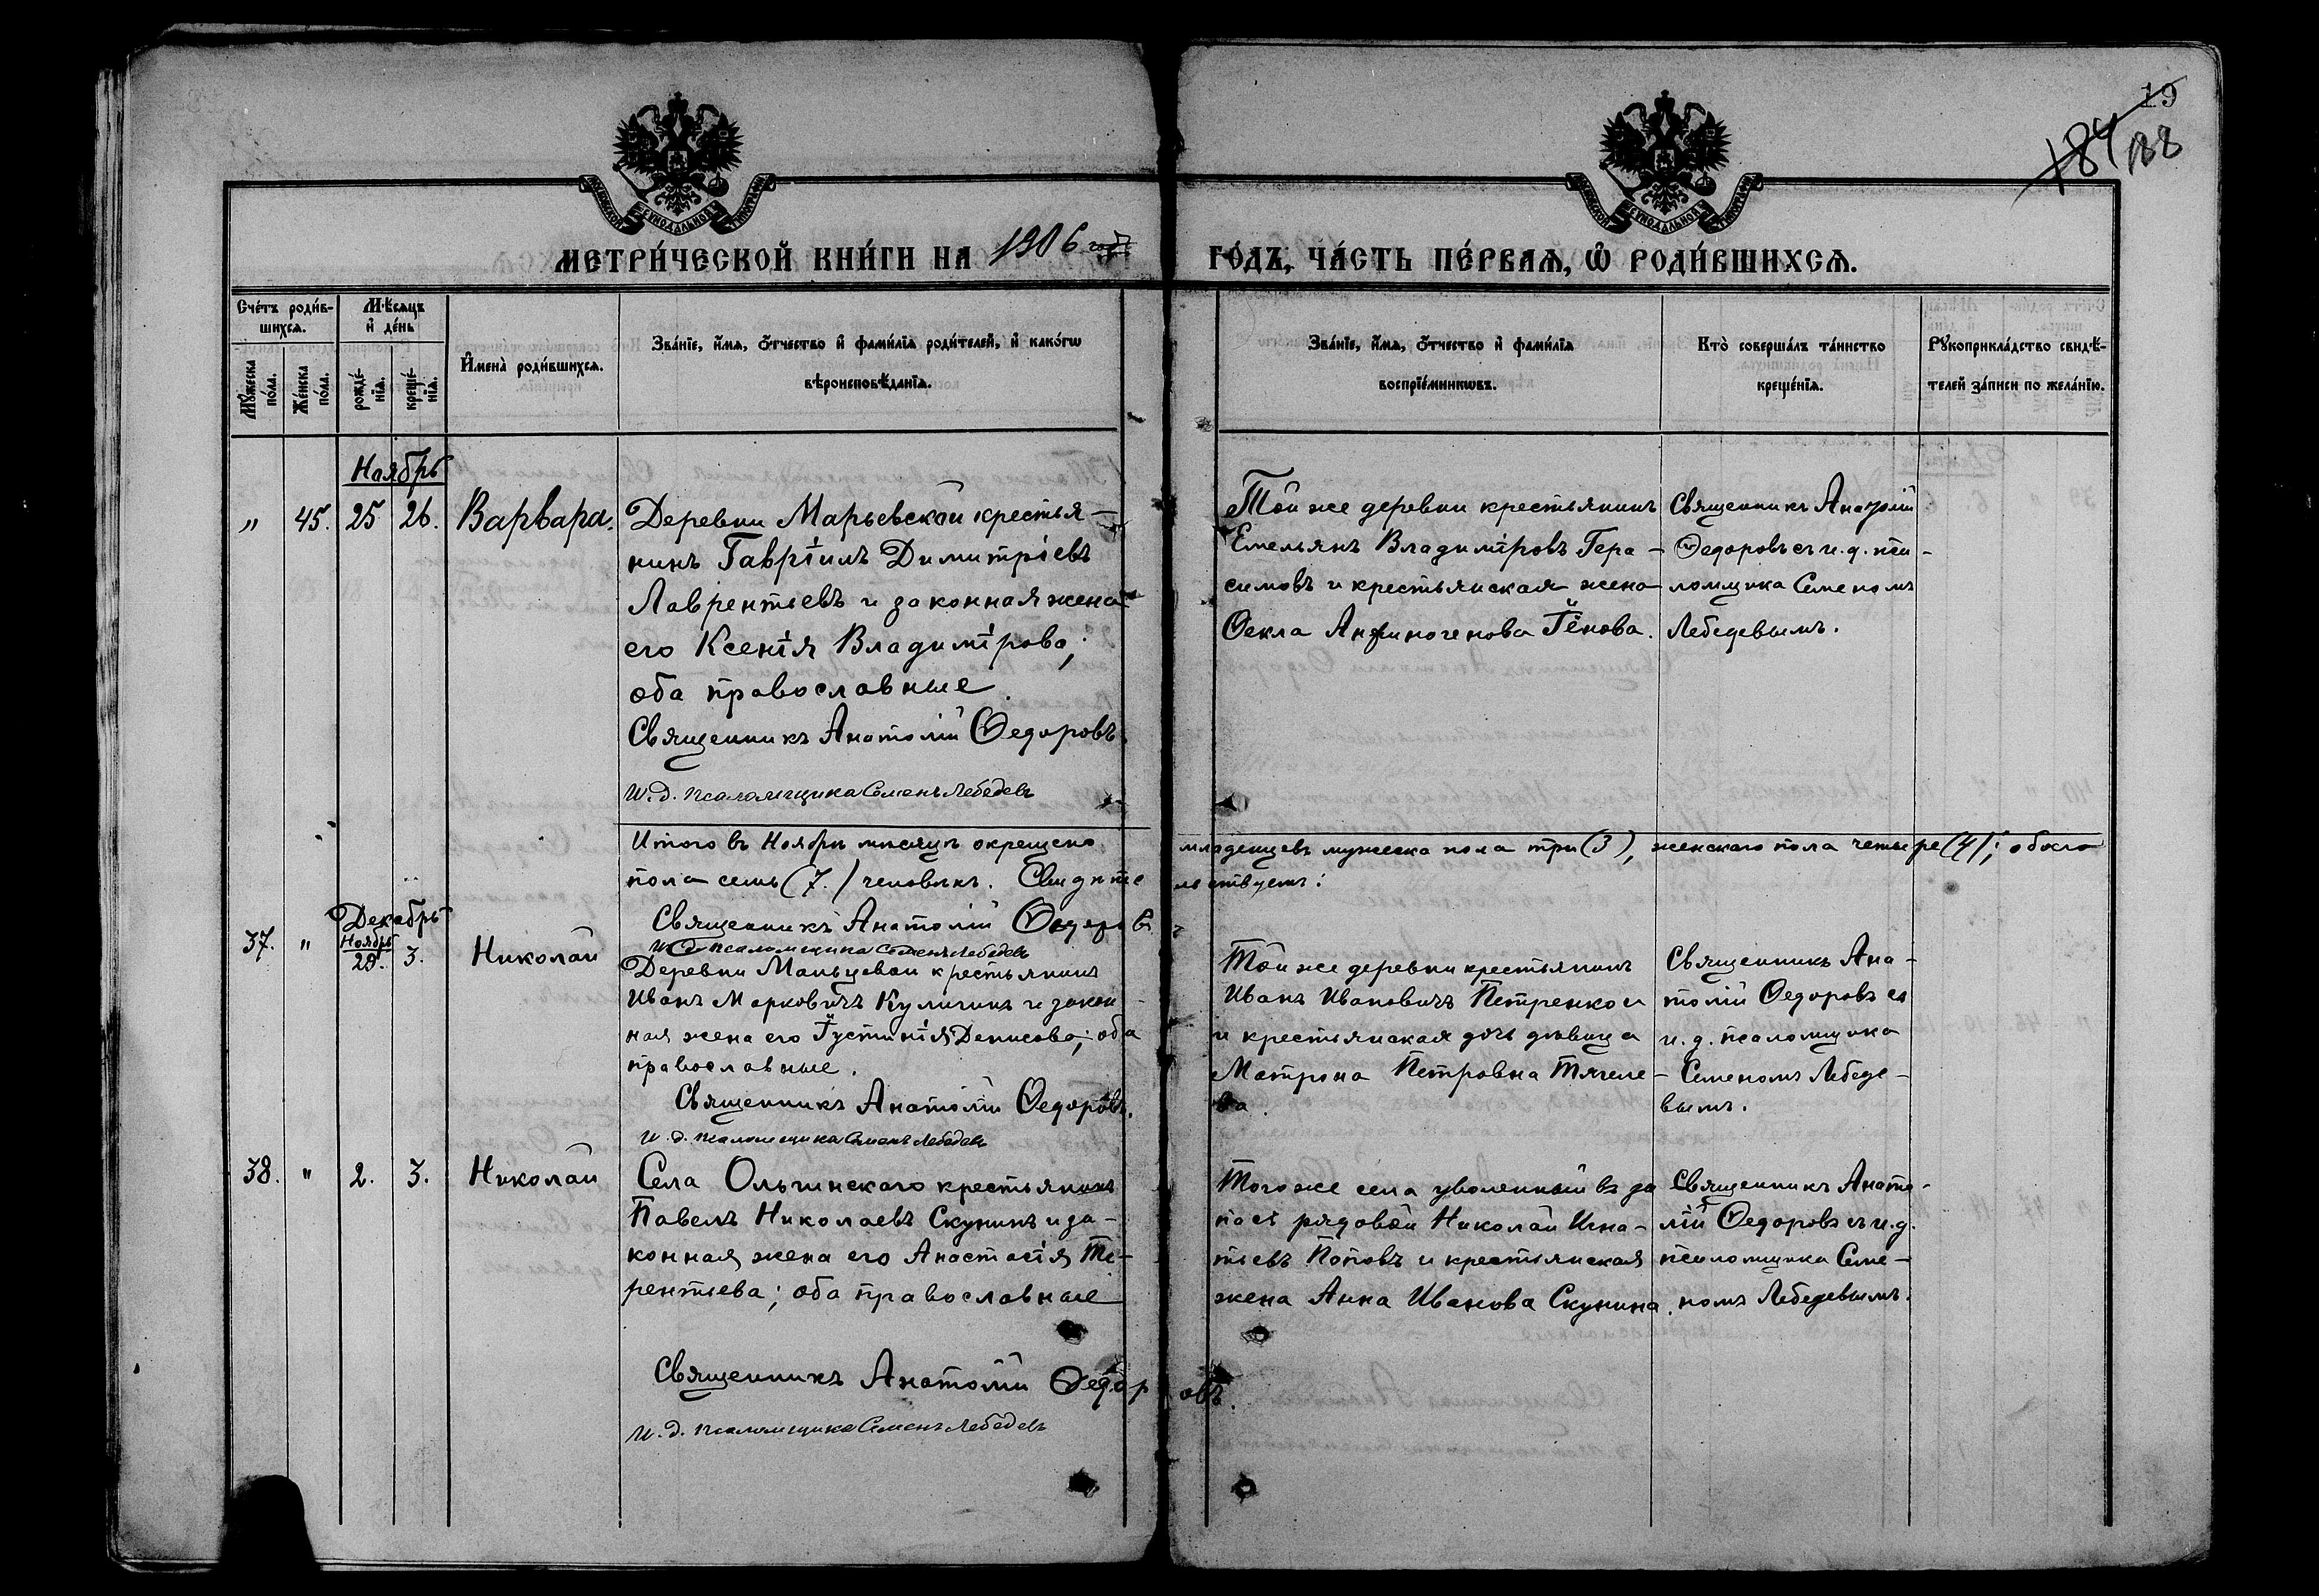 19
184 188
МЕТРИ́ЧЕСКОЙ КНИ́ГИ НА 1906 годъ
ГО́ДЪ, ЧА́СТЬ ПЕ́РВАЯ, Ѡ РОДИ́ВШИХСЯ.
Сче́тъ роди́в-
шихся.
Мꙋ́жеска по́ла.
Же́нска по́ла.
Мѣ́сяцъ
и҆ де́нь
рожде́-
нїѧ.
креще́-
нїѧ.
И҆мена̀ роди́вшихся.
Зва́нїе, и҆́мя, ѻ҆́тчество и҆ фами́лїя роди́телей, и҆ како́гѡ
вѣроисповѣ́данїя.
Зва́нїе, и҆́мя, ѻ҆́тчество и҆ фами́лїя
воспрїе́мниковъ.
Кто̀ соверша́лъ та́инство
креще́нїя.
Рꙋкоприкла́дство свидѣ́-
телей за́писи по жела́нїю.
Ноябрь
" 45. 25 26. Варвара.
Деревни Марьевской крестья-
нинъ Гавріилъ Димитріевъ
Лаврентьевъ и законная жена
его Ксенія Владимірова;
оба православные.
Священникъ Анатолій Ѳедоровъ.
И. д. псаломщика Семенъ Лебедевъ
Той же деревни крестьянинъ
Емельянъ Владиміровъ Гера-
симовъ и крестьянская жена
Ѳекла Анфиногенова Гёнова.
Священникъ Анатолій
Ѳедоровъ съ и. д. пса-
ломщика Семеномъ
Лебедевымъ.
Итого въ Ноябрѣ мѣсяцѣ окрещено младенцевъ мужеска пола три (3), женскаго пола четыре (4); обоего
пола семь (7.) человѣкъ. Свидѣтельствуемъ:
Священникъ Анатолій Ѳедоровъ
И. д. псаломщика Семенъ Лебедевъ
Декабрь
37. " Ноябрь 29. 3. Николай
Деревни Мальцевой крестьянинъ
Иванъ Марковичъ Куличинъ и закон-
ная жена его Іустинія Денисова; оба
православные.
Священникъ Анатолій Ѳедоровъ.
И. д. псаломщика Семенъ Лебедевъ
Той же деревни крестьянинъ
Иванъ Ивановичъ Петренко и
и крестьянская дочь дѣвица
Матрона Петровна Тягеле-
ва.
Священникъ Ана-
толій Ѳедоровъ съ
и. д. псаломщика
Семеномъ Лебеде-
вымъ.
38. " 2. 3. Николай
Села Ольгинскаго крестьянинъ
Павелъ Николаевъ Скунинъ и за-
конная жена его Анастасія Те-
рентьева; оба православные
Священникъ Анатолій Ѳедоровъ.
И. д. псаломщика Семенъ Лебедевъ
Того же села уволенный въ за
пасъ рядовой Николай Игна-
тьевъ Поповъ и крестьянская
жена Анна Иванова Скунина.
Священникъ Анато-
лій Ѳедоровъ съ и. д.
псаломщика Семе-
номъ Лебедевымъ.